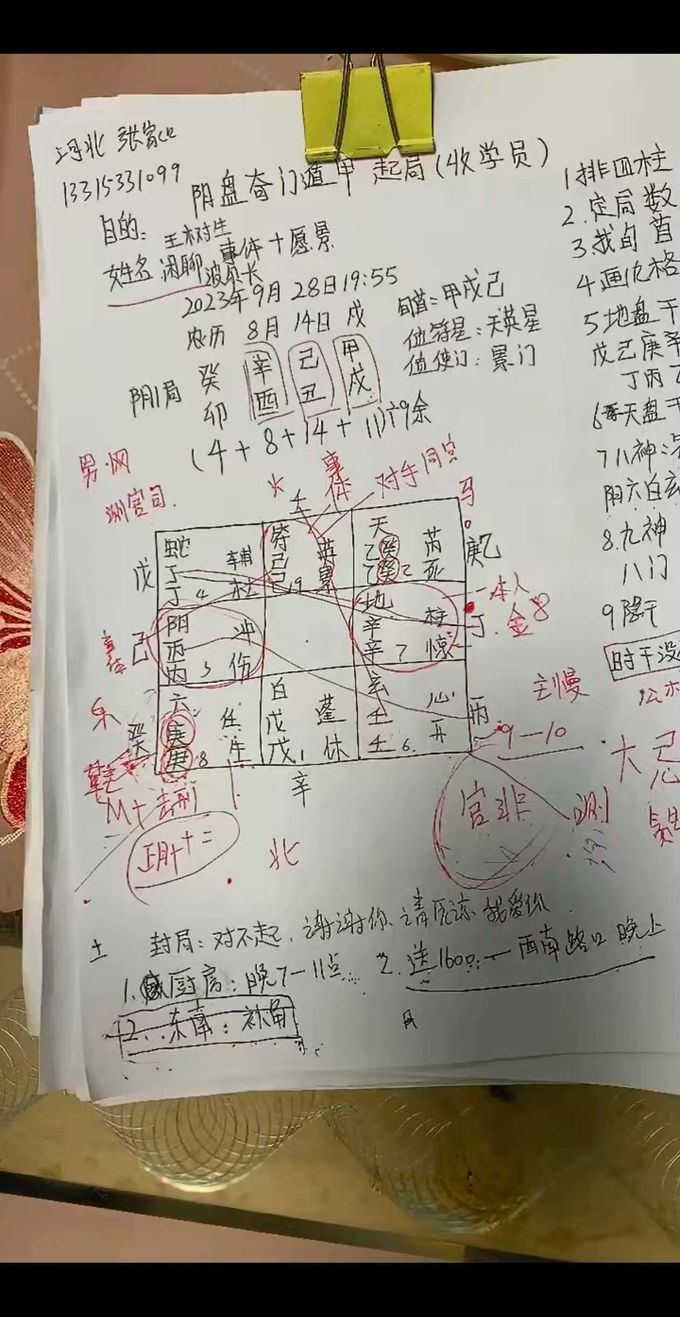 河北 张家口
13315331099
阴盘奇门遁甲 起局(收学员)
目的:
王树生
事体+愿景
女姓名 闲聊
2023年9月28日19:55
农历 8月14日 戌
旬首=甲戌己
值符星:天英星
值使门:景门
阴1局
癸 辛 己 甲
卯 酉 丑 戌
(4+8+14+11)÷9余
男.网
测官司
火
事体
对手同宫
马
壬
戊
蛇 辅
丁
丁 4 杜
符 英
己
己 9 景
天
乙癸 芮
乙癸 2 死
庚乙
事体
己
阴 冲
丙
丙 3 伤
地 柱
辛
辛 7 惊
一本人
丁.金8
癸
六 任
庚
庚 8 生
白 蓬
戊
戊 1 休
玄 心
壬
壬 6 开
丙
主慢
9—10
辛
M+击刑
正月++=
北
官非
测
大忌
土 封局:对不起.谢谢你 请原谅 我爱你
1.厨房:晚7—11点 2.送1600.一西南路口 晚上
2.东南:补角
1排四柱
2.定局数
3.找旬首
4画九格
5地盘干
戊己庚辛
丁丙乙
6天盘干
7八神:
阴六白玄
8.九神
八门
9隐干
时干没